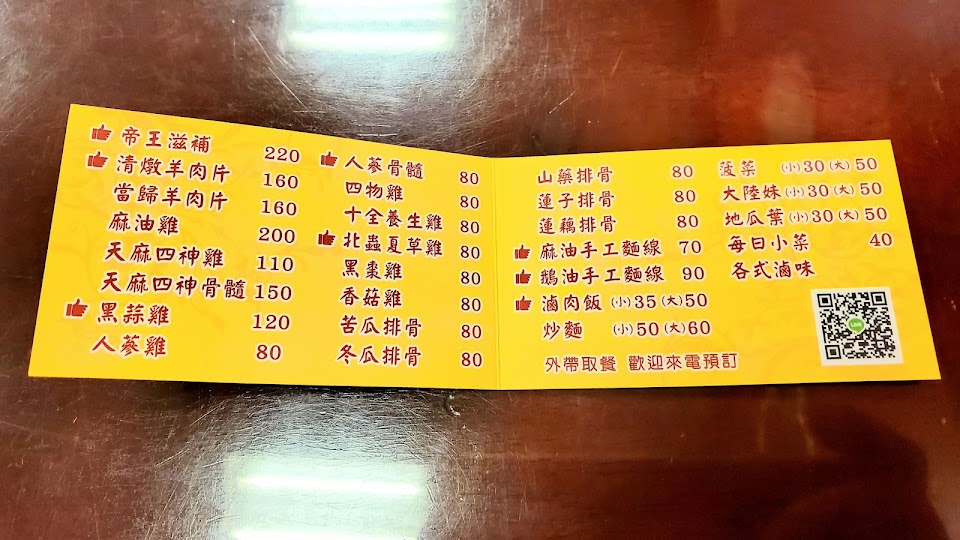 帝王滋補 220
清燉羊肉片 160
當歸羊肉片 160
麻油雞 200
天麻四神雞 110
天麻四神骨髓 150
黑蒜雞 120
人蔘雞 80
人蔘骨髓 80
四物雞 80
十全養生雞 80
北蟲夏草雞 80
黑棗雞 80
香菇雞 80
苦瓜排骨 80
冬瓜排骨 80
山藥排骨 80
蓮子排骨 80
蓮藕排骨 80
麻油手工麵線 70
鵝油手工麵線 90
滷肉飯 (小)35(大)50
炒麵 (小)50(大)60
菠菜 (小)30(大)50
大陸妹(小)30(大)50
地瓜葉(小)30(大)50
每日小菜 40
各式滷味
外帶取餐 歡迎來電預訂